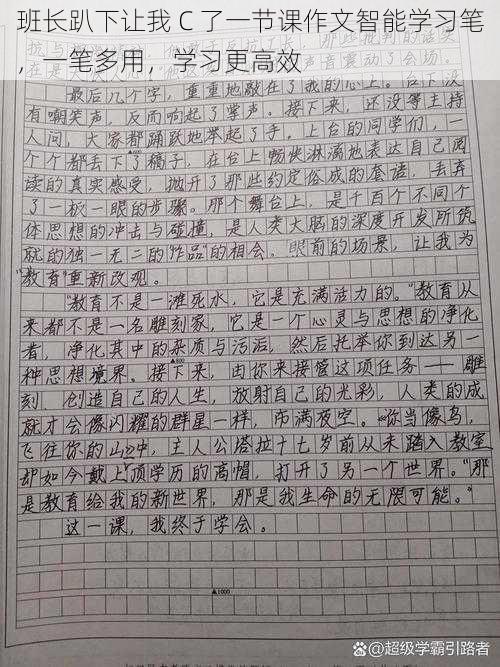 班长趴下让我 C 了一节课作文智能学习笔
，一笔多用，学习更高效
最后几个字，重重地敲在了我的心上。台下没
有嘲笑声，反而响起了掌声。接下来，还没等主持
人问，大家都踊跃地举起了手，上台的同学们，一
个个都丢下了稿子，在台上畅快淋漓地表达自己阅
读的真实感受，抛开了那些约定俗成的套话，丢弃
了一板一眼的步骤。那个舞台上，是千百个不同个
体思想的冲击与碰撞，是人类大脑的深度开发所筑
就的独一无二的“作品”的相会。眼前的场景，让我为
“教育”重新改观。
“教育不是一滩死水，它是充满活力的。”教育从
来都不是一名雕刻家，它是一个心灵与思想的净化
者，净化其中的杂质与污垢，然后托举你到达另一
种思想境界。接下来，由你来接管这项任务——雕
刻，创造自己的人生，放射自己的光彩，人类的成
就才会像闪耀的群星一样，布满夜空。“你当像鸟，
飞往你的山”中，主人公塔拉十七岁前从未踏入教室
却如今戴上顶学历的高帽，打开了另一个世界。“那
是教育给我的新世界，那是我生命的无限可能。”
这一课，我终于学会。
▲800
▲1000
@超级学霸引路者